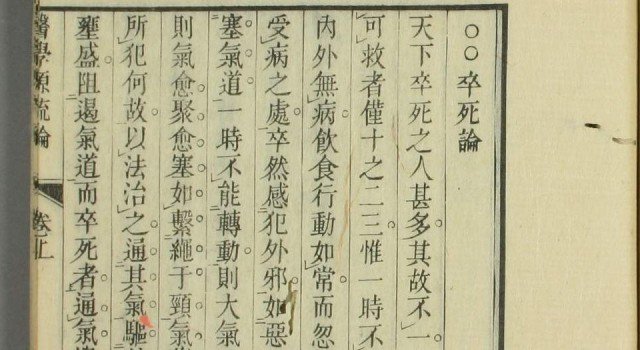 ○○卒死論
天下卒死之人甚多其故不一
可救者僅十之二三惟一時不
內外無病飲食行動如常而忽
受病之處卒然感犯外邪如惡
塞氣道一時不能轉動則大氣
則氣愈聚愈塞如繫繩于頸氣
所犯何故以法治之通其氣驅
壅盛阻遏氣道而卒死者通氣
醫學源流論　卷上